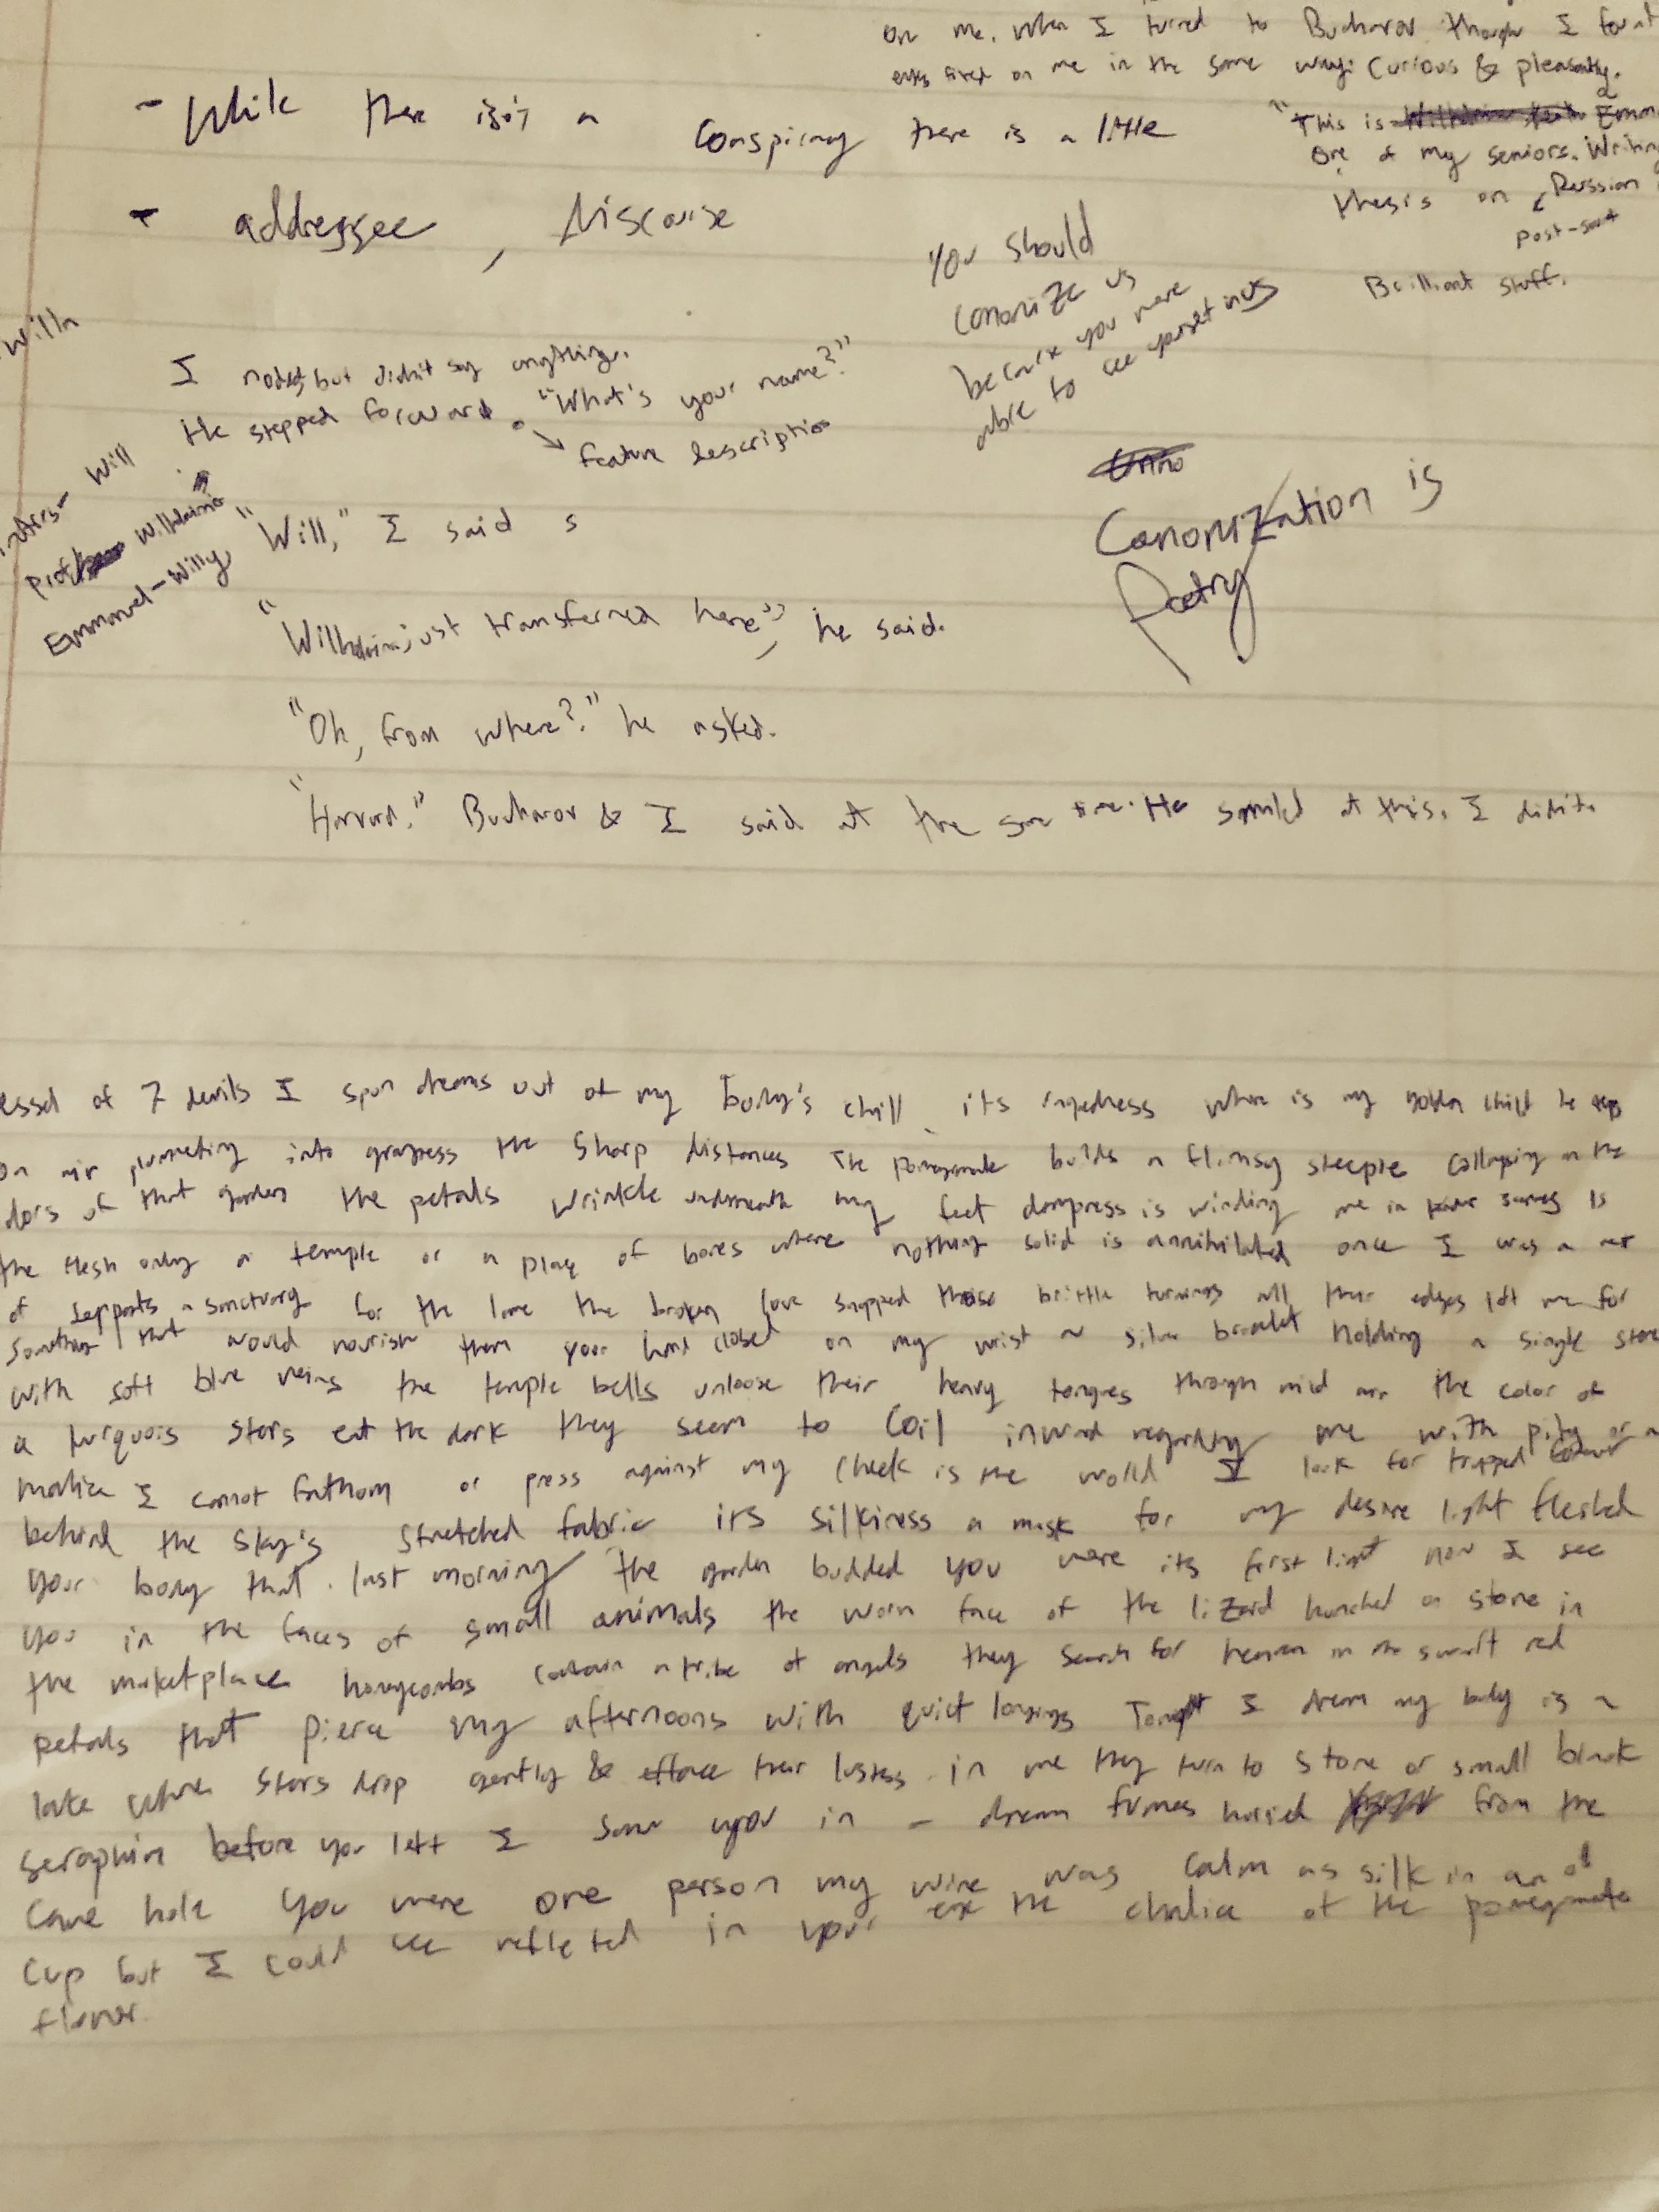 on me. When I turned to Bucharov though I found
eyes fixed on me in the same way: curious & pleasantly.
- While there isn't a conspiracy there is a little
"This is Emma
One of my seniors. Writing
thesis on Russian
post-
Brilliant stuff.
- addressee, discourse
You should
canonize us
because you were
able to see yourself in us
Willa
I nodded, but didn't say anything.
He stepped forward. "What's your name?"
feature description
Will
Prof Wilhelmina
Emmanuel - Willy
"Will," I said s
Canonization is
Poetry
"Wilhelmina just transferred here," he said.
"Oh, from where?" he asked.
"Harvard." Bucharov & I said at the same time. He smiled at this. I didn't.
essel of 7 devils I spun dreams out of my body's chill its raggedness where is my golden child he
on air plummeting into grayness the sharp distances The pomegranate builds a flimsy steeple collapsing on the
dors of that garden the petals wrinkle underneath my feet dampness is winding me in is
the flesh only a temple or a place of bones where nothing solid is annihilated once I was a
of serpents a sanctuary for the lame the broken love snapped those brittle turnings all their edges left me for
something that would nourish them your hand closed on my wrist a silver bracelet holding a single stone
with soft blue veins the temple bells unloose their heavy tongues through mid air the color of
a turquois stars eat the dark they seem to coil inward regarding me with pity or a
malice I cannot fathom or press against my cheek is the world I look for trapped
behind the sky's stretched fabric its silkiness a mask for my desire light fleshed
your body that last morning the garden budded you were its first light now I see
you in the faces of small animals the worn face of the lizard hunched on stone in
the marketplace honeycombs contain a tribe of angels they search for heaven in the swift red
petals that pierce my afternoons with quiet longings Tonight I dream my body is a
lake where stars drop gently & efface their lusters in me they turn to stone or small black
seraphim before you left I saw you in a dream furnes hurried from the
cave hole you were one person my wine was calm as silk in an old
cup but I could see reflected in your eye the chalice of the pomegranate
flower.